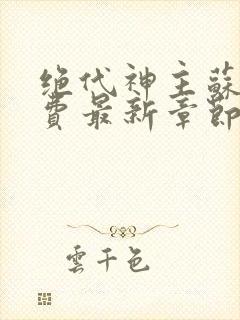 绝代神主蘇
費最新章節
雲千色